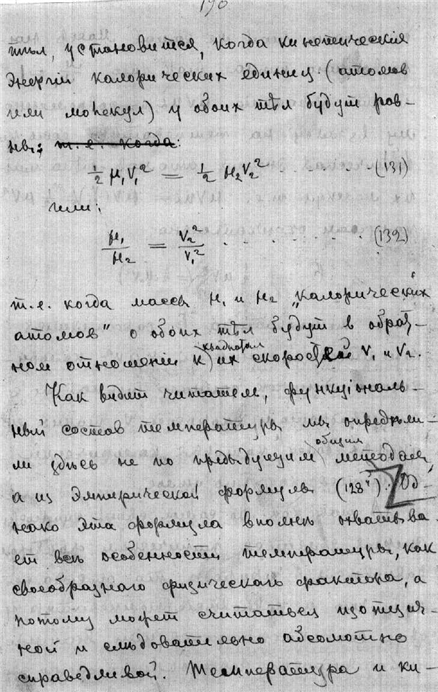 190
тѣл, установится, когда кинетическія
энергіи калорических единиц (атомов
или молекул) у обоих тѣл будут рав-
ны; т.е. когда:
½ μ₁v₁² = ½ μ₂v₂² . . . . . . (131)
или:
μ₁/μ₂ = v₂²/v₁² . . . . . . . . . (132)
т.е. когда массы μ₁ и μ₂ „калорических
атомов" о обоих тѣл будут в обрат-
ном отношеніи к квадратам их скоростей v₁ и v₂.
Как видит читатель, функціональ-
ный состав температуры мы опредѣли-
ли здѣсь не по предыдущим общим методам,
а из эмпирической формулы (128"). Од-
нако эта формула вполнѣ охватыва-
ет всѣ особенности температуры, как
своеобразнаго физическаго фактора, а
потому может считаться
ной и слѣдовательно абсолютно
справедливой. Температура и ки-